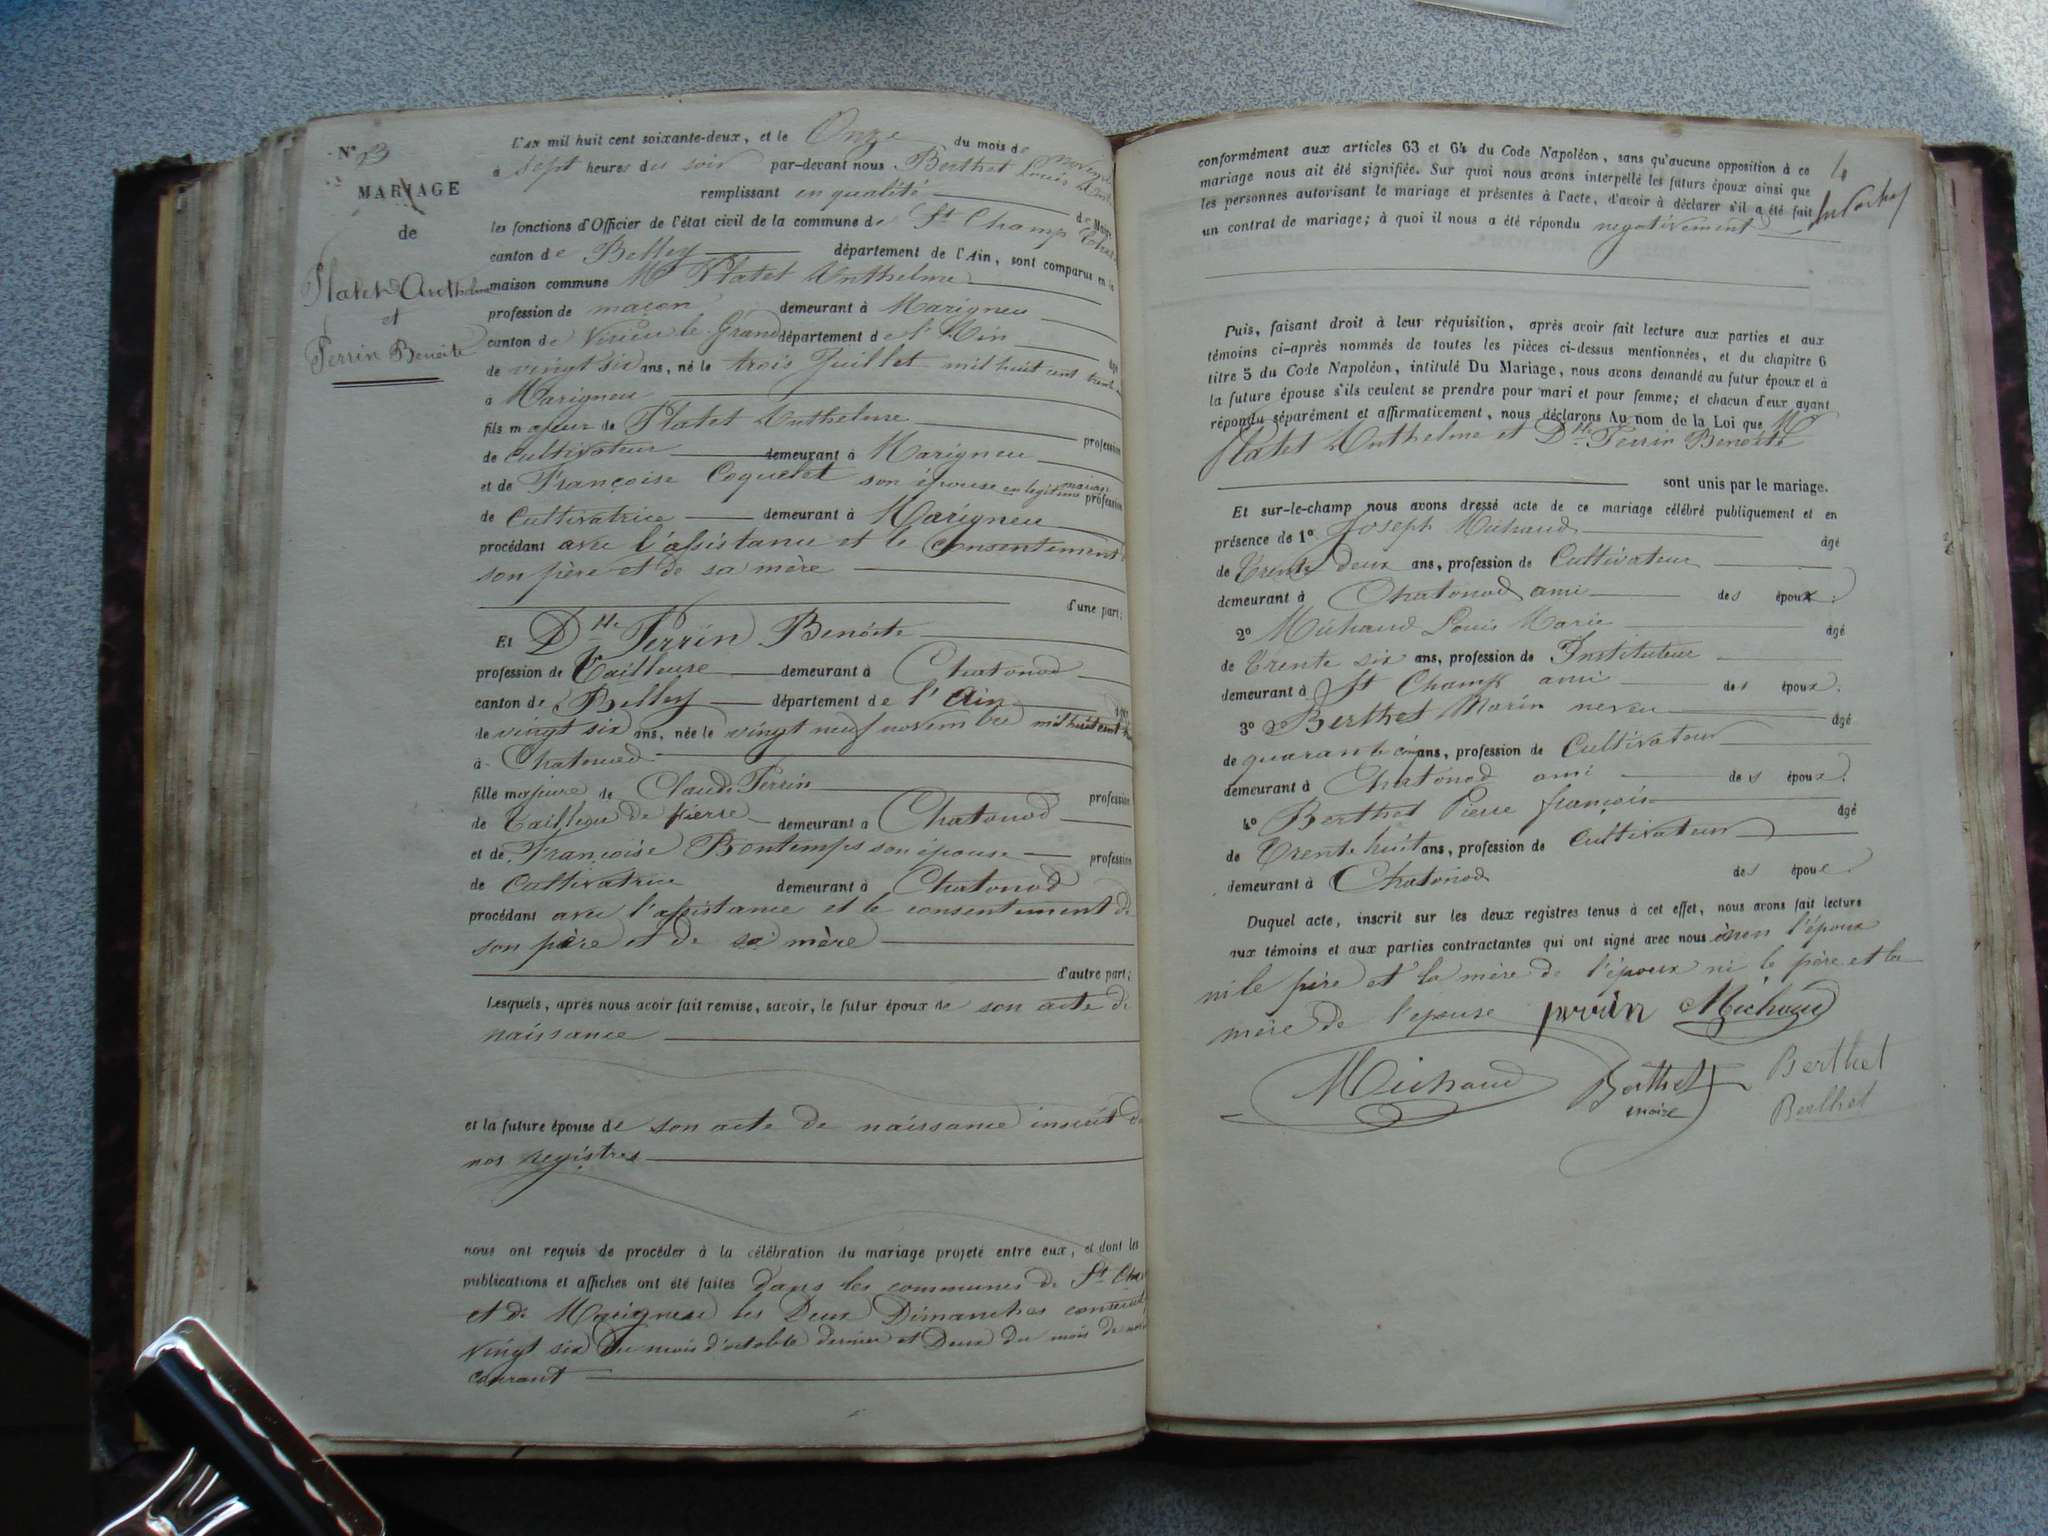 N° 3
MARIAGE
de
Platet Anthelme
et
Perrin Benoite
L'AN mil huit cent soixante-deux, et le Onze du mois de novembre
à sept heures du soir par-devant nous Berthet Louis
remplissant en qualité de Maire
les fonctions d'Officier de l'état civil de la commune de St Champ
canton de Belley département de l'Ain, sont comparus en la
maison commune Mr Platet Anthelme
profession de maçon demeurant à Marigneu
canton de Virieu le Grand département de l'Ain âgé
de vingt six ans, né le trois Juillet mil huit cent trente
à Marigneu
fils majeur de Platet Anthelme profession
de cultivateur demeurant à Marigneu
et de Françoise Coquelet son épouse en legitime profession
de Cultivatrice demeurant à Marigneu
procédant avec l'assistance et le consentement de
son père et de sa mère
d'une part;
Et Dlle Perrin Benoite
profession de Tailleuse demeurant à Chatonod
canton de Belley département de l'Ain
de vingt six ans, née le vingt neuf novembre mil huit cent
à Chatonod
fille majeure de Claude Perrin profession
de Tailleur de pierre demeurant à Chatonod
et de Françoise Bontemps son épouse profession
de Cultivatrice demeurant à Chatonod
procédant avec l'assistance et le consentement de
son père et de sa mère
d'autre part;
Lesquels, après nous avoir fait remise, savoir, le futur époux de son acte de
naissance
et la future épouse de son acte de naissance inscrit de
nos registres
nous ont requis de procéder à la célébration du mariage projeté entre eux, et dont les
publications et affiches ont été faites dans les communes de St Champ
et de Marigneu les Deux Dimanches consécutifs
vingt six du mois d'octobre dernier et Deux du mois de
courant
conformément aux articles 63 et 64 du Code Napoléon, sans qu'aucune opposition à ce
mariage nous ait été signifiée. Sur quoi nous avons interpellé les futurs époux ainsi que
les personnes autorisant le mariage et présentes à l'acte, d'avoir à déclarer s'il a été fait
un contrat de mariage; à quoi il nous a été répondu negativement
Puis, faisant droit à leur réquisition, après avoir fait lecture aux parties et aux
témoins ci-après nommés de toutes les pièces ci-dessus mentionnées, et du chapitre 6
titre 5 du Code Napoléon, intitulé Du Mariage, nous avons demandé au futur époux et à
la future épouse s'ils veulent se prendre pour mari et pour femme; et chacun d'eux ayant
répondu séparément et affirmativement, nous déclarons Au nom de la Loi que Mr
Platet Anthelme et Dlle Perrin Benoite
sont unis par le mariage.
Et sur-le-champ nous avons dressé acte de ce mariage célébré publiquement et en
présence de 1° Joseph Michaud âgé
de Trente deux ans, profession de Cultivateur
demeurant à Chatonod ami des époux.
2° Michaud Louis Marie âgé
de Trente six ans, profession de Instituteur
demeurant à St Champ ami des époux.
3° Berthet Marin neveu âgé
de quarante cinq ans, profession de Cultivateur
demeurant à Chatonod ami des époux.
4° Berthet Pierre françois âgé
de Trente huit ans, profession de cultivateur
demeurant à Chatonod des époux.
Duquel acte, inscrit sur les deux registres tenus à cet effet, nous avons fait lecture
aux témoins et aux parties contractantes qui ont signé avec nous non l'époux
ni le père et la mère de l'époux ni le père et la
mère de l'epouse perrin Michaud
Michaud Berthet Berthet
maire Berthet